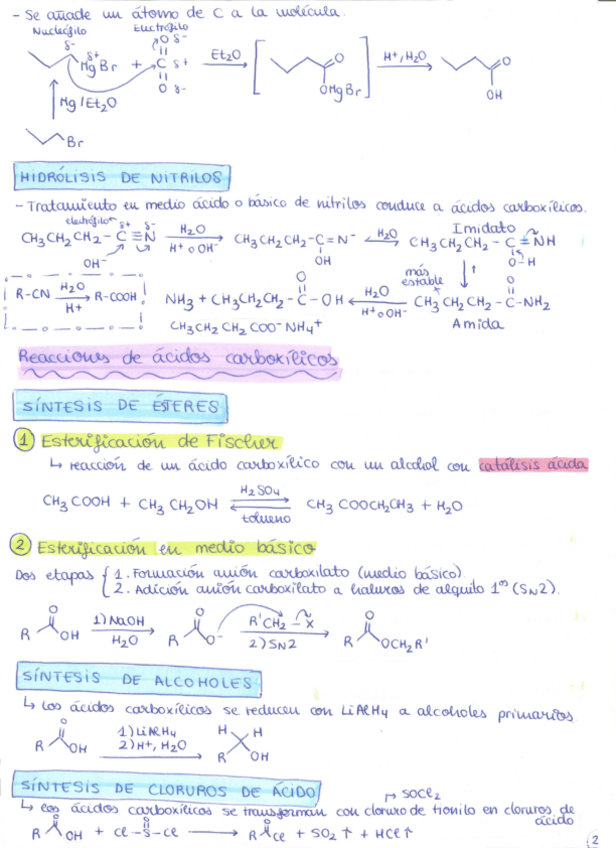 - Se añade un átomo de C a la molécula.
Nucleófilo Electrófilo
δ- δ+ MgBr + O δ- C δ+ O δ- Et2O [ O OMgBr ] H+, H2O O OH
Mg/Et2O
Br
HIDRÓLISIS DE NITRILOS
- Tratamiento en medio ácido o básico de nitrilos conduce a ácidos carboxílicos.
electrófilo Imidato
CH3CH2CH2 - C ≡ N H2O H+ o OH- CH3CH2CH2 - C = N- OH H2O CH3CH2CH2 - C = NH O - H
δ+ δ-
OH-
más estable
R-CN H2O H+ R-COOH NH3 + CH3CH2CH2 - C - OH H2O H+ o OH- CH3CH2CH2 - C - NH2
O O
CH3CH2CH2COO- NH4+ Amida
Reacciones de ácidos carboxílicos
SÍNTESIS DE ÉSTERES
1 Esterificación de Fischer
↳ reacción de un ácido carboxílico con un alcohol con catálisis ácida
CH3COOH + CH3CH2OH H2SO4 tolueno CH3COOCH2CH3 + H2O
2 Esterificación en medio básico
Dos etapas { 1. Formación anión carboxilato (medio básico).
2. Adición anión carboxilato a haluros de alquilo 1º (SN2).
R O OH 1) NaOH H2O R O O- R'CH2 - X 2) SN2 R O OCH2R'
SÍNTESIS DE ALCOHOLES
↳ Los ácidos carboxílicos se reducen con LiAlH4 a alcoholes primarios.
R O OH 1) LiAlH4 2) H+, H2O H H R OH
SÍNTESIS DE CLORUROS DE ÁCIDO
SOCl2
↳ los ácidos carboxílicos se transforman con cloruro de tionilo en cloruros de ácido
R O OH + Cl - S - Cl O → R O Cl + SO2 ↑ + HCl ↑
2